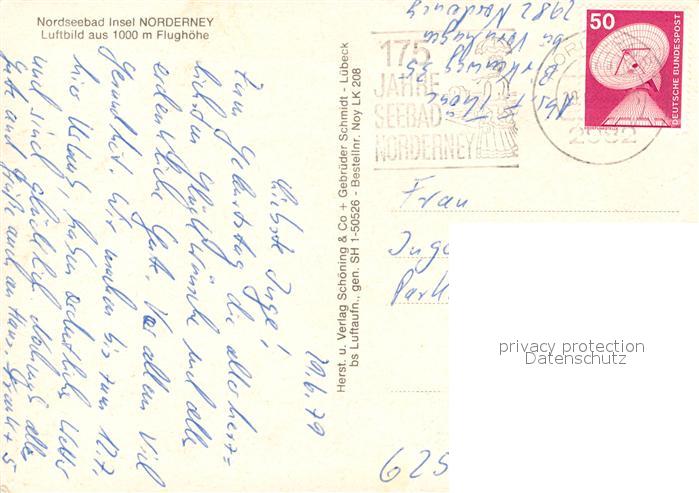 Nordseebad Insel NORDERNEY
Luftbild aus 1000 m Flughöhe
19.6.79
Liebste Inge!
Zum Geburtstag die allerherz=
lichsten Glückwünsche und alles
erdenkliche Gute. Vor allem viel
Gesundheit. Wir machen bis zum 12.7.
hier Urlaub, haben Wetter
und sind glücklich. Nochmals alles
Gute und Grüße auch an Hans.
Herst. u. Verlag Schöning & Co + Gebrüder Schmidt - Lübeck
bs Luftaufn., gen. SH 1-50526 - Bestellnr. Noy LK 208
Abs.
2982 Norderney
175
JAHRE
SEEBAD
NORDERNEY
2982
50
DEUTSCHE BUNDESPOST
Frau
Inge
Park
625
privacy protection
Datenschutz